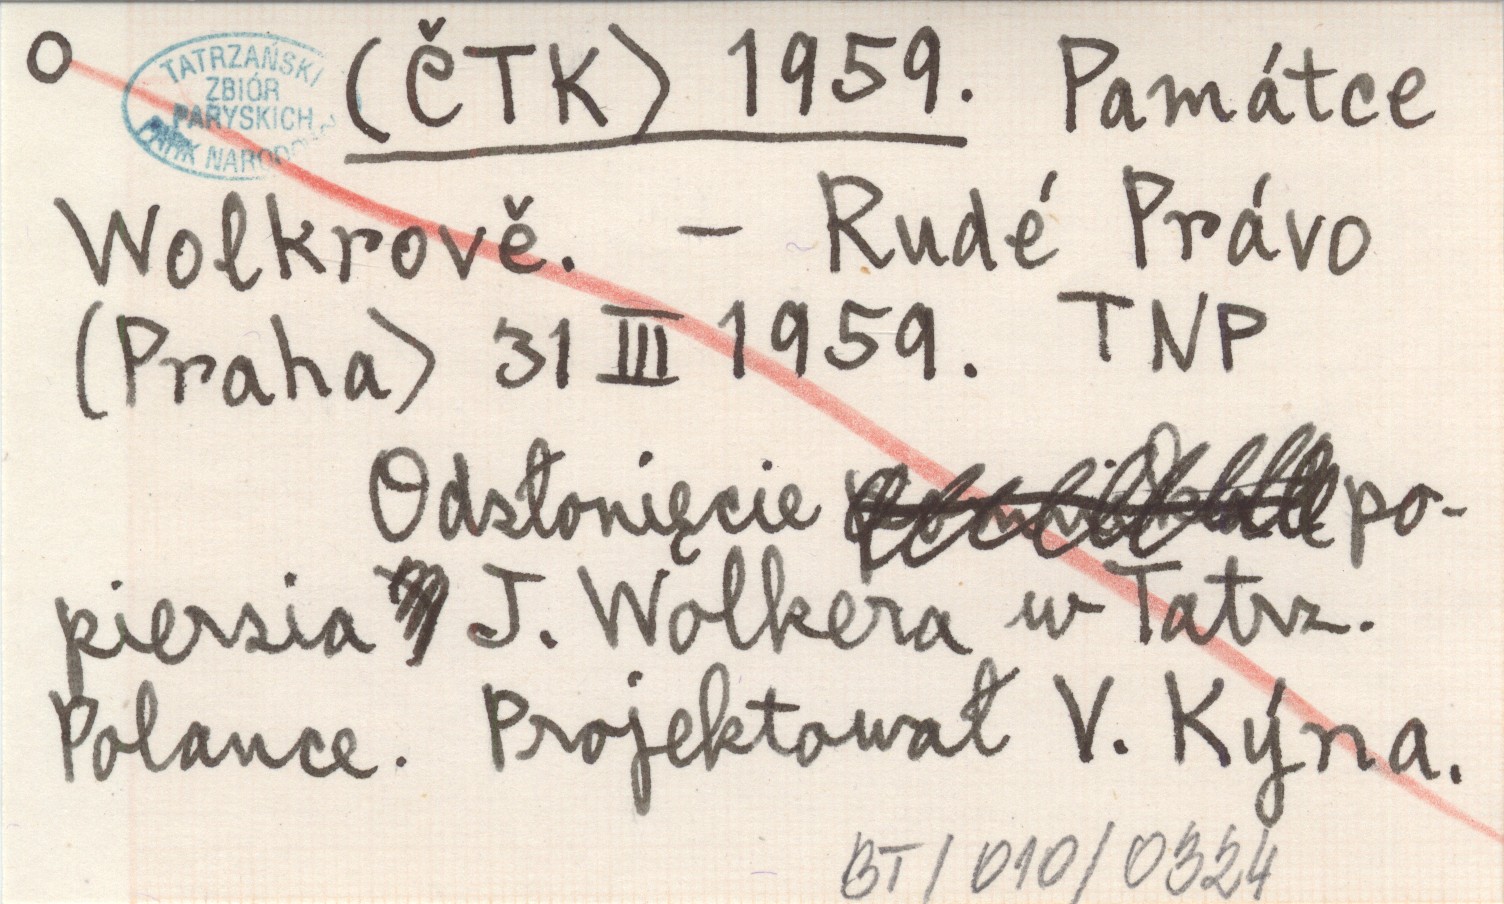 O (ČTK) 1959. Památce
TATRZAŃSKI
ZBIÓR
PARYSKICH
PARK NAROD
Wolkrově. – Rudé Právo
(Praha) 31 III 1959. TNP
Odsłonięcie po-
piersia J. Wolkera w Tatrz.
Polance. Projektował V. Kýna.
BT/010/0324